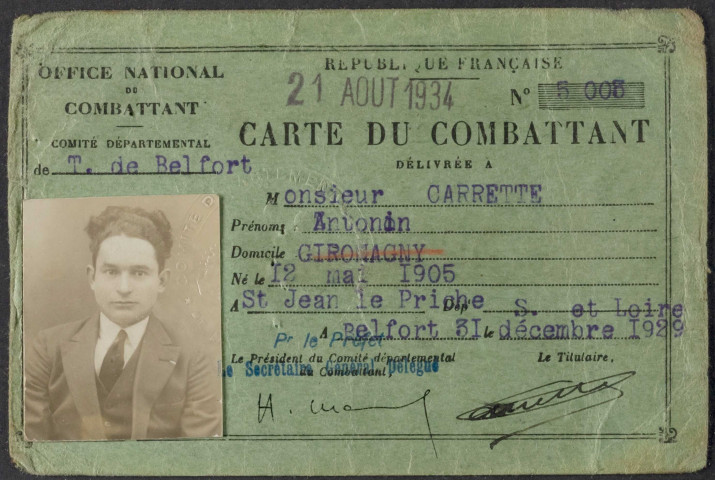 OFFICE NATIONAL
DU
COMBATTANT
COMITÉ DÉPARTEMENTAL
de T. de Belfort
RÉPUBLIQUE FRANÇAISE
21 AOUT 1934
N° 5 005
CARTE DU COMBATTANT
DÉLIVRÉE A
Monsieur CARRETTE
Prénoms : Antonin
Domicile GIROMAGNY
Né le 12 mai 1905
A St Jean le Priche Dépt S. et Loire
A Belfort 31 le décembre 1929
Pr le Préfet
Le Président du Comité départemental
du Combattant
Le Secrétaire Général Délégué
Le Titulaire,